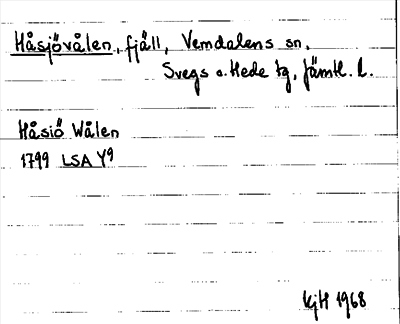 Håsjövålen, fjäll, Vemdalens sn.
Svegs o. Hede tg, Jämtl. l.
Håsiö Wålen
1799 LSA Y9
kjH 1968